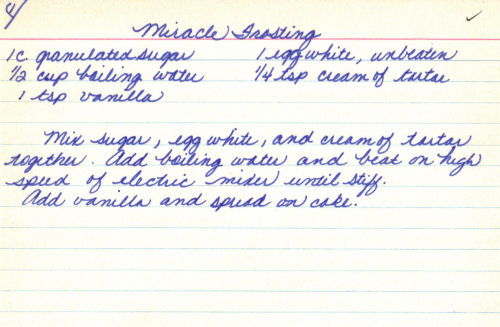 4/
Miracle Frosting
1 c. granulated sugar 1 egg white, unbeaten
1/2 cup boiling water 1/4 tsp cream of tartar
1 tsp vanilla
Mix sugar, egg white, and cream of tartar
together. Add boiling water and beat on high
speed of electric mixer until stiff.
Add vanilla and spread on cake.